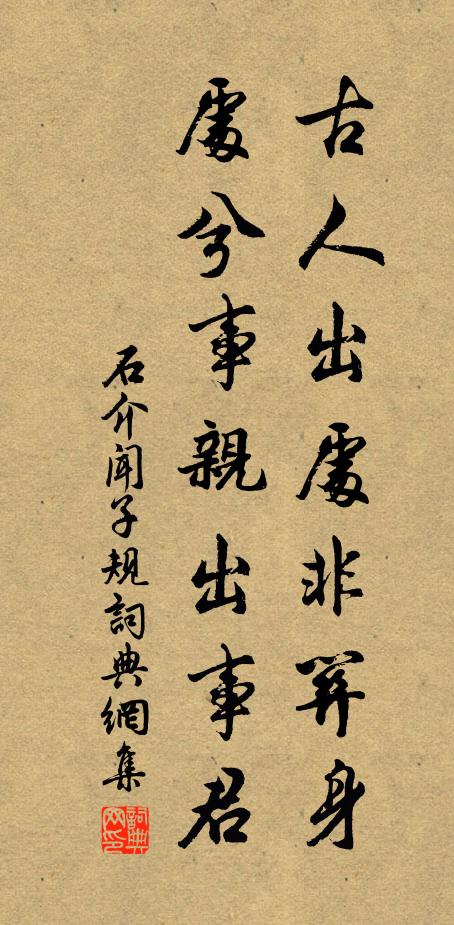 古人出處非關身
處兮事親出事君
石介聞子規詞典網集
詞典網印